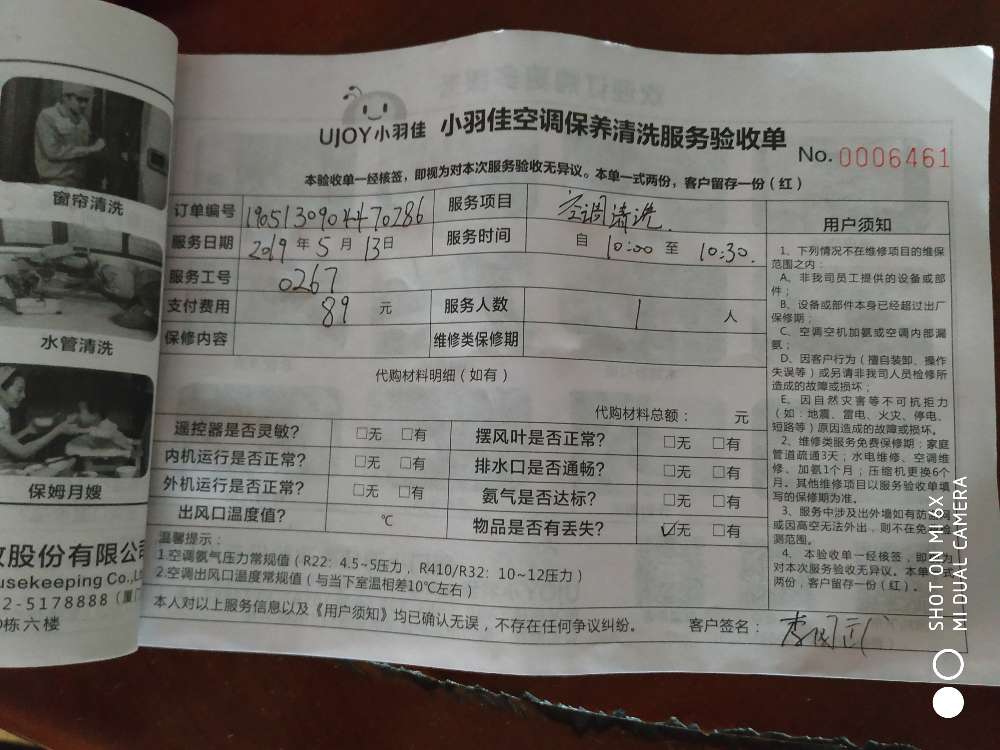 窗帘清洗
水管清洗
保姆月嫂
股份有限公司
usekeeping Co.,L
2-5178888（厦门
栋六楼
UJOY小羽佳 小羽佳空调保养清洗服务验收单
No. 0006461
本验收单一经核签，即视为对本次服务验收无异议。本单一式两份，客户留存一份（红）
订单编号 1905130904470786 服务项目 空调清洗
服务日期 2019 年 5 月 13日 服务时间 自 10:00 至 10:30.
服务工号 0267
支付费用 89 元 服务人数 1 人
保修内容 维修类保修期
代购材料明细（如有）
代购材料总额： 元
遥控器是否灵敏? □无 □有 摆风叶是否正常? □无 □有
内机运行是否正常? □无 □有 排水口是否通畅? □无 □有
外机运行是否正常? □无 □有 氨气是否达标? □无 □有
出风口温度值? ℃ 物品是否有丢失? ☑无 □有
温馨提示：
1.空调氨气压力常规值（R22：4.5~5压力，R410/R32：10~12压力）
2.空调出风口温度常规值（与当下室温相差10℃左右）
本人对以上服务信息以及《用户须知》均已确认无误，不存在任何争议纠纷。 客户签名：
用户须知
1、下列情况不在维修项目的维保
范围之内：
A、非我司员工提供的设备或部
件；
B、设备或部件本身已经超过出厂
保修期；
C、空调空机加氨或空调内部漏
氨；
D、因客户行为（擅自装卸、操作
失误等）或另请非我司人员检修所
造成的故障或损坏；
E、因自然灾害等不可抗拒力
（如：地震、雷电、火灾、停电、
短路等）原因造成的故障或损坏。
2、维修类服务免费保修期：家庭
管道疏通3天；水电维修、空调维
修、加氨1个月；压缩机更换6个
月。其他维修项目以服务验收单填
写的保修期为准。
3、服务中涉及出外墙如有防
或因高空无法外出，则不在免
测范围。
4、本验收单一经核签，即
对本次服务验收无异议。本单一式
两份，客户留存一份（红）。
SHOT ON MI 6X
MI DUAL CAMERA